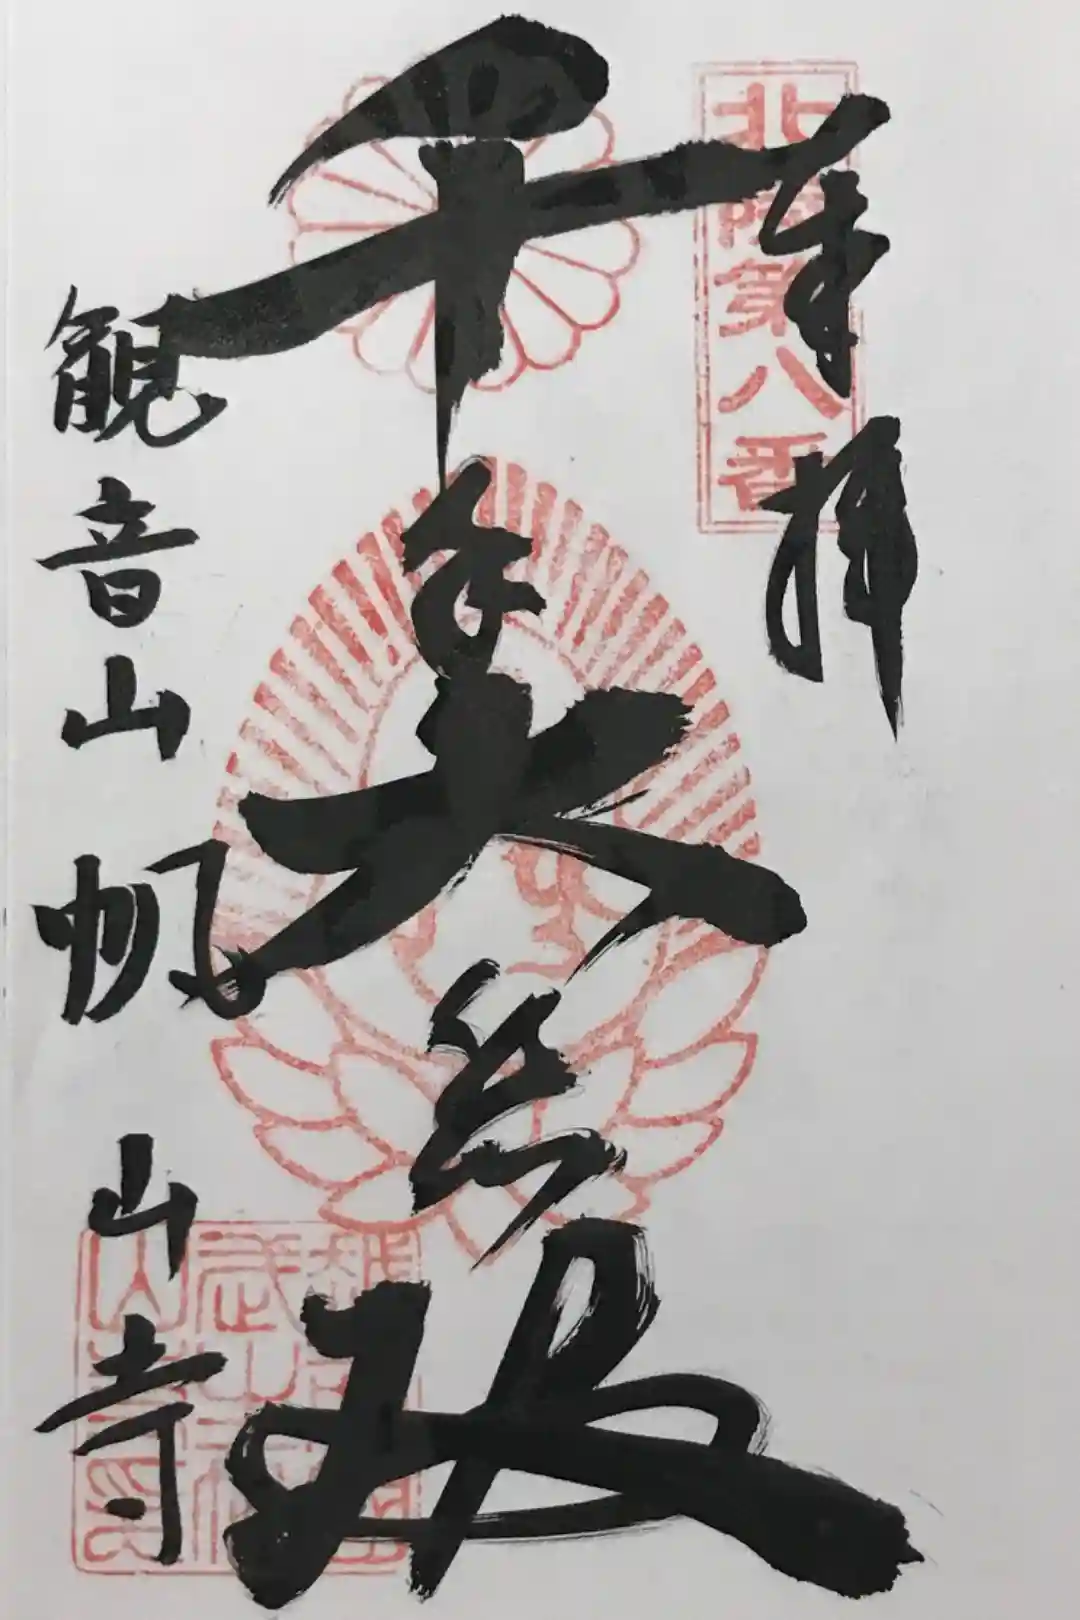 北陸第八番
奉拝
千手大悲殿
観音山帆山寺